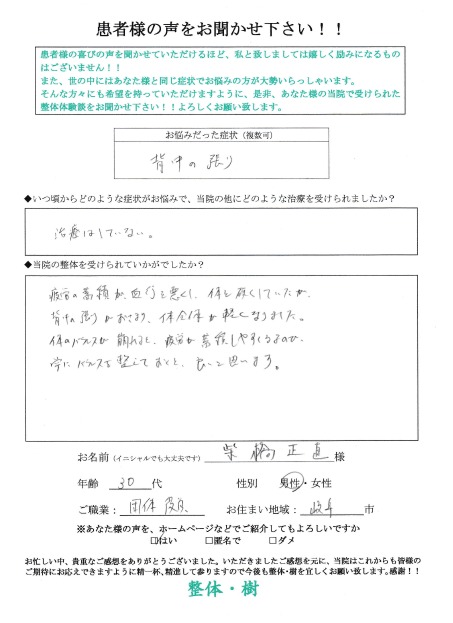 患者様の声をお聞かせ下さい！！
患者様の喜びの声を聞かせていただけるほど、私と致しましては嬉しく励みになるもの
はございません！！
また、世の中にはあなた様と同じ症状でお悩みの方が大勢いらっしゃいます。
そんな方々にも希望を持っていただけますように、是非、あなた様の当院で受けられた
整体体験談をお聞かせ下さい！！よろしくお願い致します。
お悩みだった症状（複数可）
背中の張り
◆いつ頃からどのような症状がお悩みで、当院の他にどのような治療を受けられましたか？
治療はしていない。
◆当院の整体を受けられていかがでしたか？
疲労の蓄積が血行を悪くし、体を硬くしていたが、
背中の張りがおさまり、体全体が軽くなりました。
体のバランスが崩れると、疲労が蓄積しやすくなるので、
常にバランスを整えておくと、良いと思います。
お名前（イニシャルでも大丈夫です） 柴橋正直 様
年齢 30 代 性別 男性・女性
ご職業： 団体役員 お住まい地域： 岐阜 市
※あなた様の声を、ホームページなどでご紹介してもよろしいですか
□はい □匿名で □ダメ
お忙しい中、貴重なご感想をありがとうございました。いただきましたご感想を元に、当院はこれからも皆様の
ご期待にお応えできますように精一杯、精進して参りますので今後も整体・樹を宜しくお願い致します。感謝！！
整体・樹